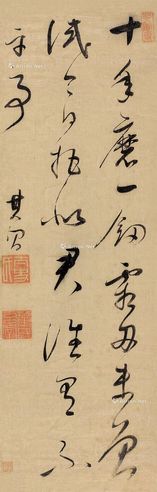 十年磨一劍霜刃未曾
試今日把似君誰有不
平事
其昌